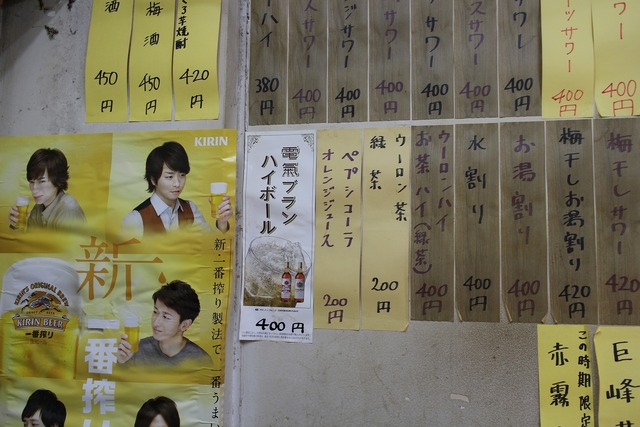 酒
450
円
梅酒
450
円
くろ芋焼酎
420
円
ハイ
380
円
スサワー
400
円
ジサワー
400
円
サワー
400
円
サワー
400
円
スサワー
400
円
サワー
400
円
ッサワー
400
円
ワー
400
円
KIRIN
新、
一番搾り
新・一番搾り製法で、一番うまい
KIRIN'S ORIGINAL BREW
KIRIN BEER
一番搾り
電氣ブラン
ハイボール
400 円
ペプシコーラ
オレンジジュース
200
円
ウーロン茶
緑茶
200
円
ウーロンハイ
お茶ハイ(緑茶)
400
円
水割り
400
円
お湯割り
400
円
梅干しお湯割り
420
円
梅干しサワー
420
円
この時期限定
赤霧
巨峰